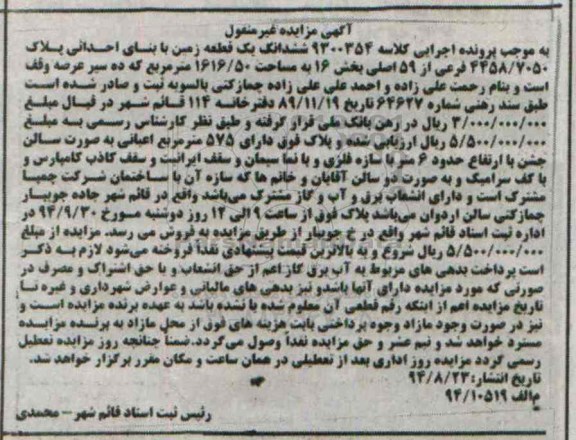 آگهی مزایده غیرمنقول
به موجب پرونده اجرایی کلاسه ۹۳۰۰۳۵۴ ششدانگ یک قطعه زمین با بنای احداثی پلاک
۴۴۵۸/۷۰۵۰ فرعی از ۵۹ اصلی بخش ۱۶ به مساحت ۱۶۱۶/۵۰ مترمربع که ده سیر عرصه وقف
است و بنام رحمت علی زاده و احمد علی علی زاده چمازکتی بالسویه ثبت و صادر شده است
طبق سند رهنی شماره ۶۴۶۲۷ تاریخ ۸۹/۱۱/۱۹ دفترخانه ۱۱۴ قائم شهر در قبال مبلغ
۳/۰۰۰/۰۰۰/۰۰۰ ریال در رهن بانک ملی قرار گرفته و طبق نظر کارشناس رسمی به مبلغ
۵/۵۰۰/۰۰۰/۰۰۰ ریال ارزیابی شده و پلاک فوق دارای ۵۷۵ مترمربع اعیانی به صورت سالن
جشن با ارتفاع حدود ۶ متر با سازه فلزی و با نما سیمان و سقف ایرانیت و سقف کاذب کامپارس و
با کف سرامیک و به صورت دو سالن آقایان و خانم ها که سازه آن با ساختمان شرکت چمپا
مشترک است و دارای انشعاب برق و آب و گاز مشترک می‌باشد واقع در قائم شهر جاده جویبار
چمازکتی سالن اردوان می‌باشد پلاک فوق از ساعت ۹ الی ۱۲ روز دوشنبه مورخ ۹۴/۹/۳۰ در
اداره ثبت اسناد قائم شهر واقع در خ جویبار از طریق مزایده به فروش می رسد. مزایده از مبلغ
۵/۵۰۰/۰۰۰/۰۰۰ ریال شروع و به بالاترین قیمت پیشنهادی نقدا فروخته می‌شود لازم به ذکر
است پرداخت بدهی های مربوط به آب برق گاز اعم از حق انشعاب و یا حق اشتراک و مصرف در
صورتی که مورد مزایده دارای آنها باشد و نیز بدهی های مالیاتی و عوارض شهرداری و غیره تا
تاریخ مزایده اعم از اینکه رقم قطعی آن معلوم شده یا نشده باشد به عهده برنده مزایده است و
نیز در صورت وجود مازاد وجوه پرداختی بابت هزینه های فوق از محل مازاد به برنده مزایده
مسترد خواهد شد و نیم عشر و حق مزایده نقداً وصول می‌گردد. ضمناً چنانچه روز مزایده تعطیل
رسمی گردد مزایده روز اداری بعد از تعطیلی در همان ساعت و مکان مقرر برگزار خواهد شد.
تاریخ انتشار: ۹۴/۸/۲۳
م‌الف ۹۴/۱۰۵۱۹
رئیس ثبت اسناد قائم شهر – محمدی